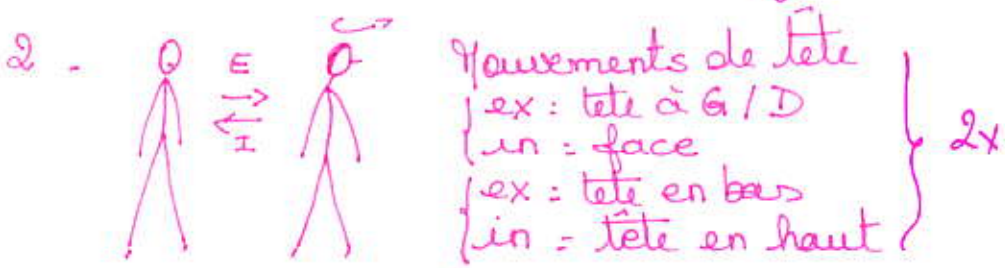 2 -
E
I
Mouvements de tête
ex : tete à G / D
in = face
ex : tete en bas
in = tête en haut
2x